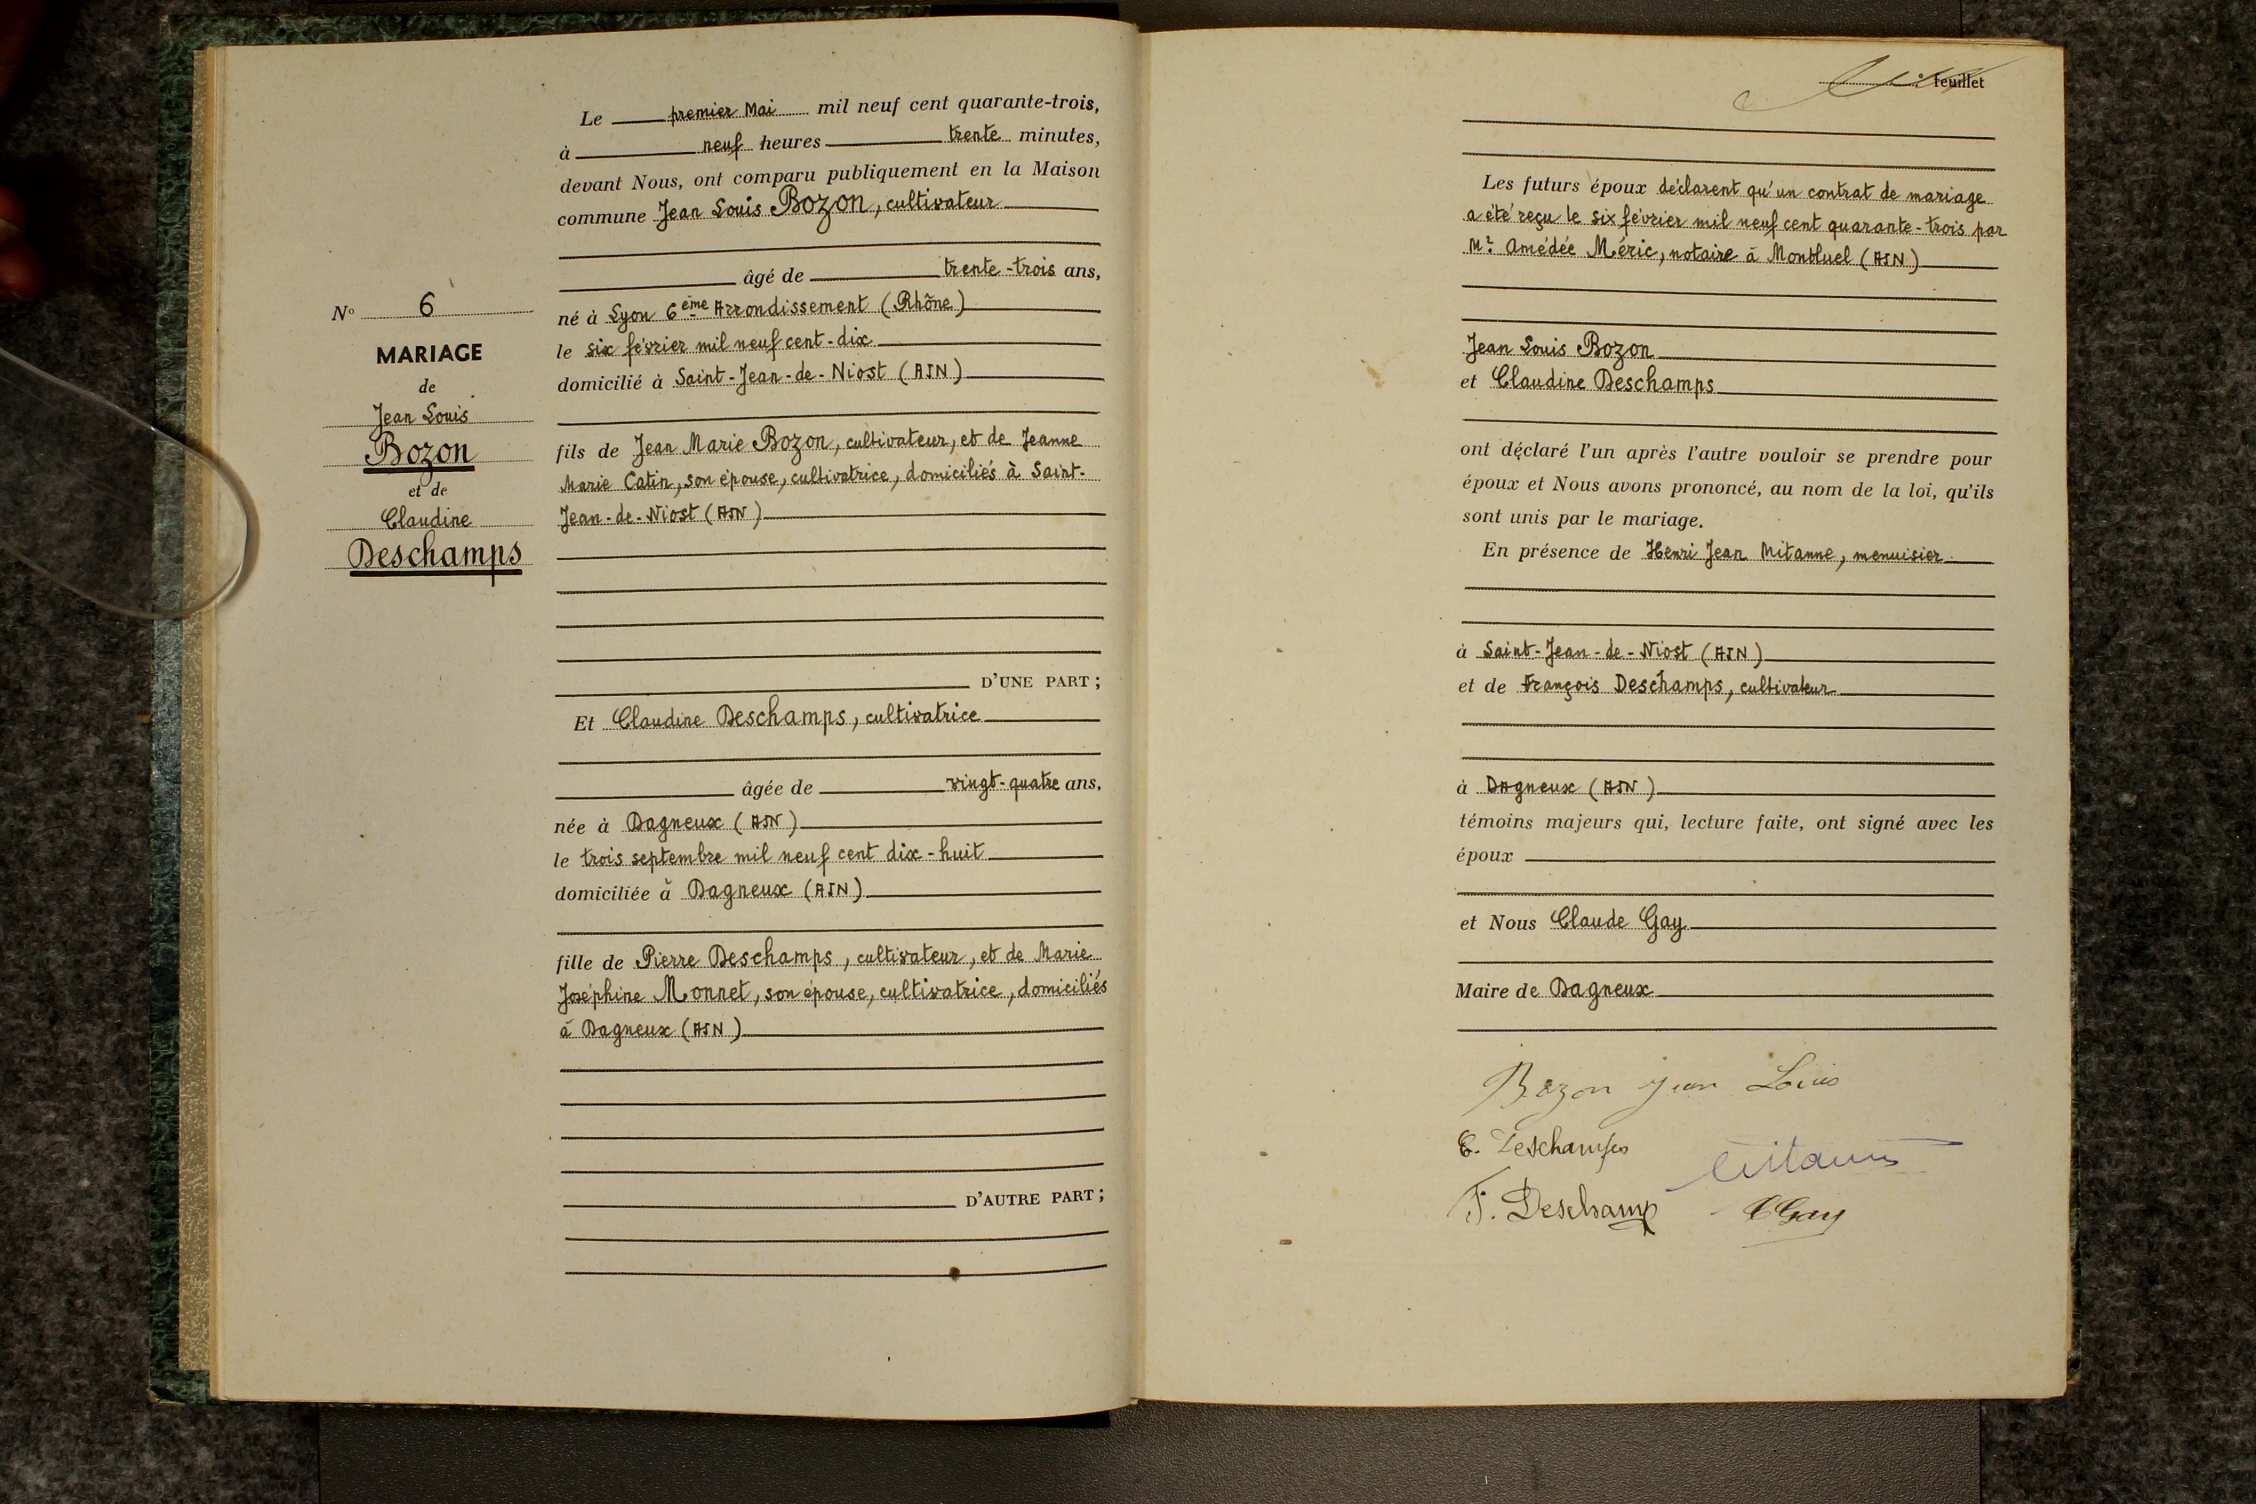 N° 6
MARIAGE
de
Jean Louis
Bozon
et de
Claudine
Deschamps
Le premier Mai mil neuf cent quarante-trois,
à neuf heures trente minutes,
devant Nous, ont comparu publiquement en la Maison
commune Jean Louis Bozon, cultivateur
âgé de trente-trois ans,
né à Lyon 6ème Arrondissement (Rhône)
le six février mil neuf cent-dix
domicilié à Saint-Jean-de-Niost (AIN)
fils de Jean Marie Bozon, cultivateur, et de Jeanne
Marie Catin, son épouse, cultivatrice, domiciliés à Saint-
Jean-de-Niost (AIN)
D'UNE PART;
Et Claudine Deschamps, cultivatrice
âgée de vingt-quatre ans,
née à Dagneux (AIN)
le trois septembre mil neuf cent dix-huit
domiciliée à Dagneux (AIN)
fille de Pierre Deschamps, cultivateur, et de Marie
Joséphine Monnet, son épouse, cultivatrice, domiciliés
à Dagneux (AIN)
D'AUTRE PART;
feuillet
Les futurs époux déclarent qu'un contrat de mariage
a été reçu le six février mil neuf cent quarante-trois par
Mr. Amédée Méric, notaire à Montluel (AIN)
Jean Louis Bozon
et Claudine Deschamps
ont déclaré l'un après l'autre vouloir se prendre pour
époux et Nous avons prononcé, au nom de la loi, qu'ils
sont unis par le mariage.
En présence de Henri Jean Mitanne, menuisier
à Saint-Jean-de-Niost (AIN)
et de François Deschamps, cultivateur
à Dagneux (AIN)
témoins majeurs qui, lecture faite, ont signé avec les
époux
et Nous Claude Gay
Maire de Dagneux
Bozon Jean Louis
C. Deschamps
F. Deschamp
CGay